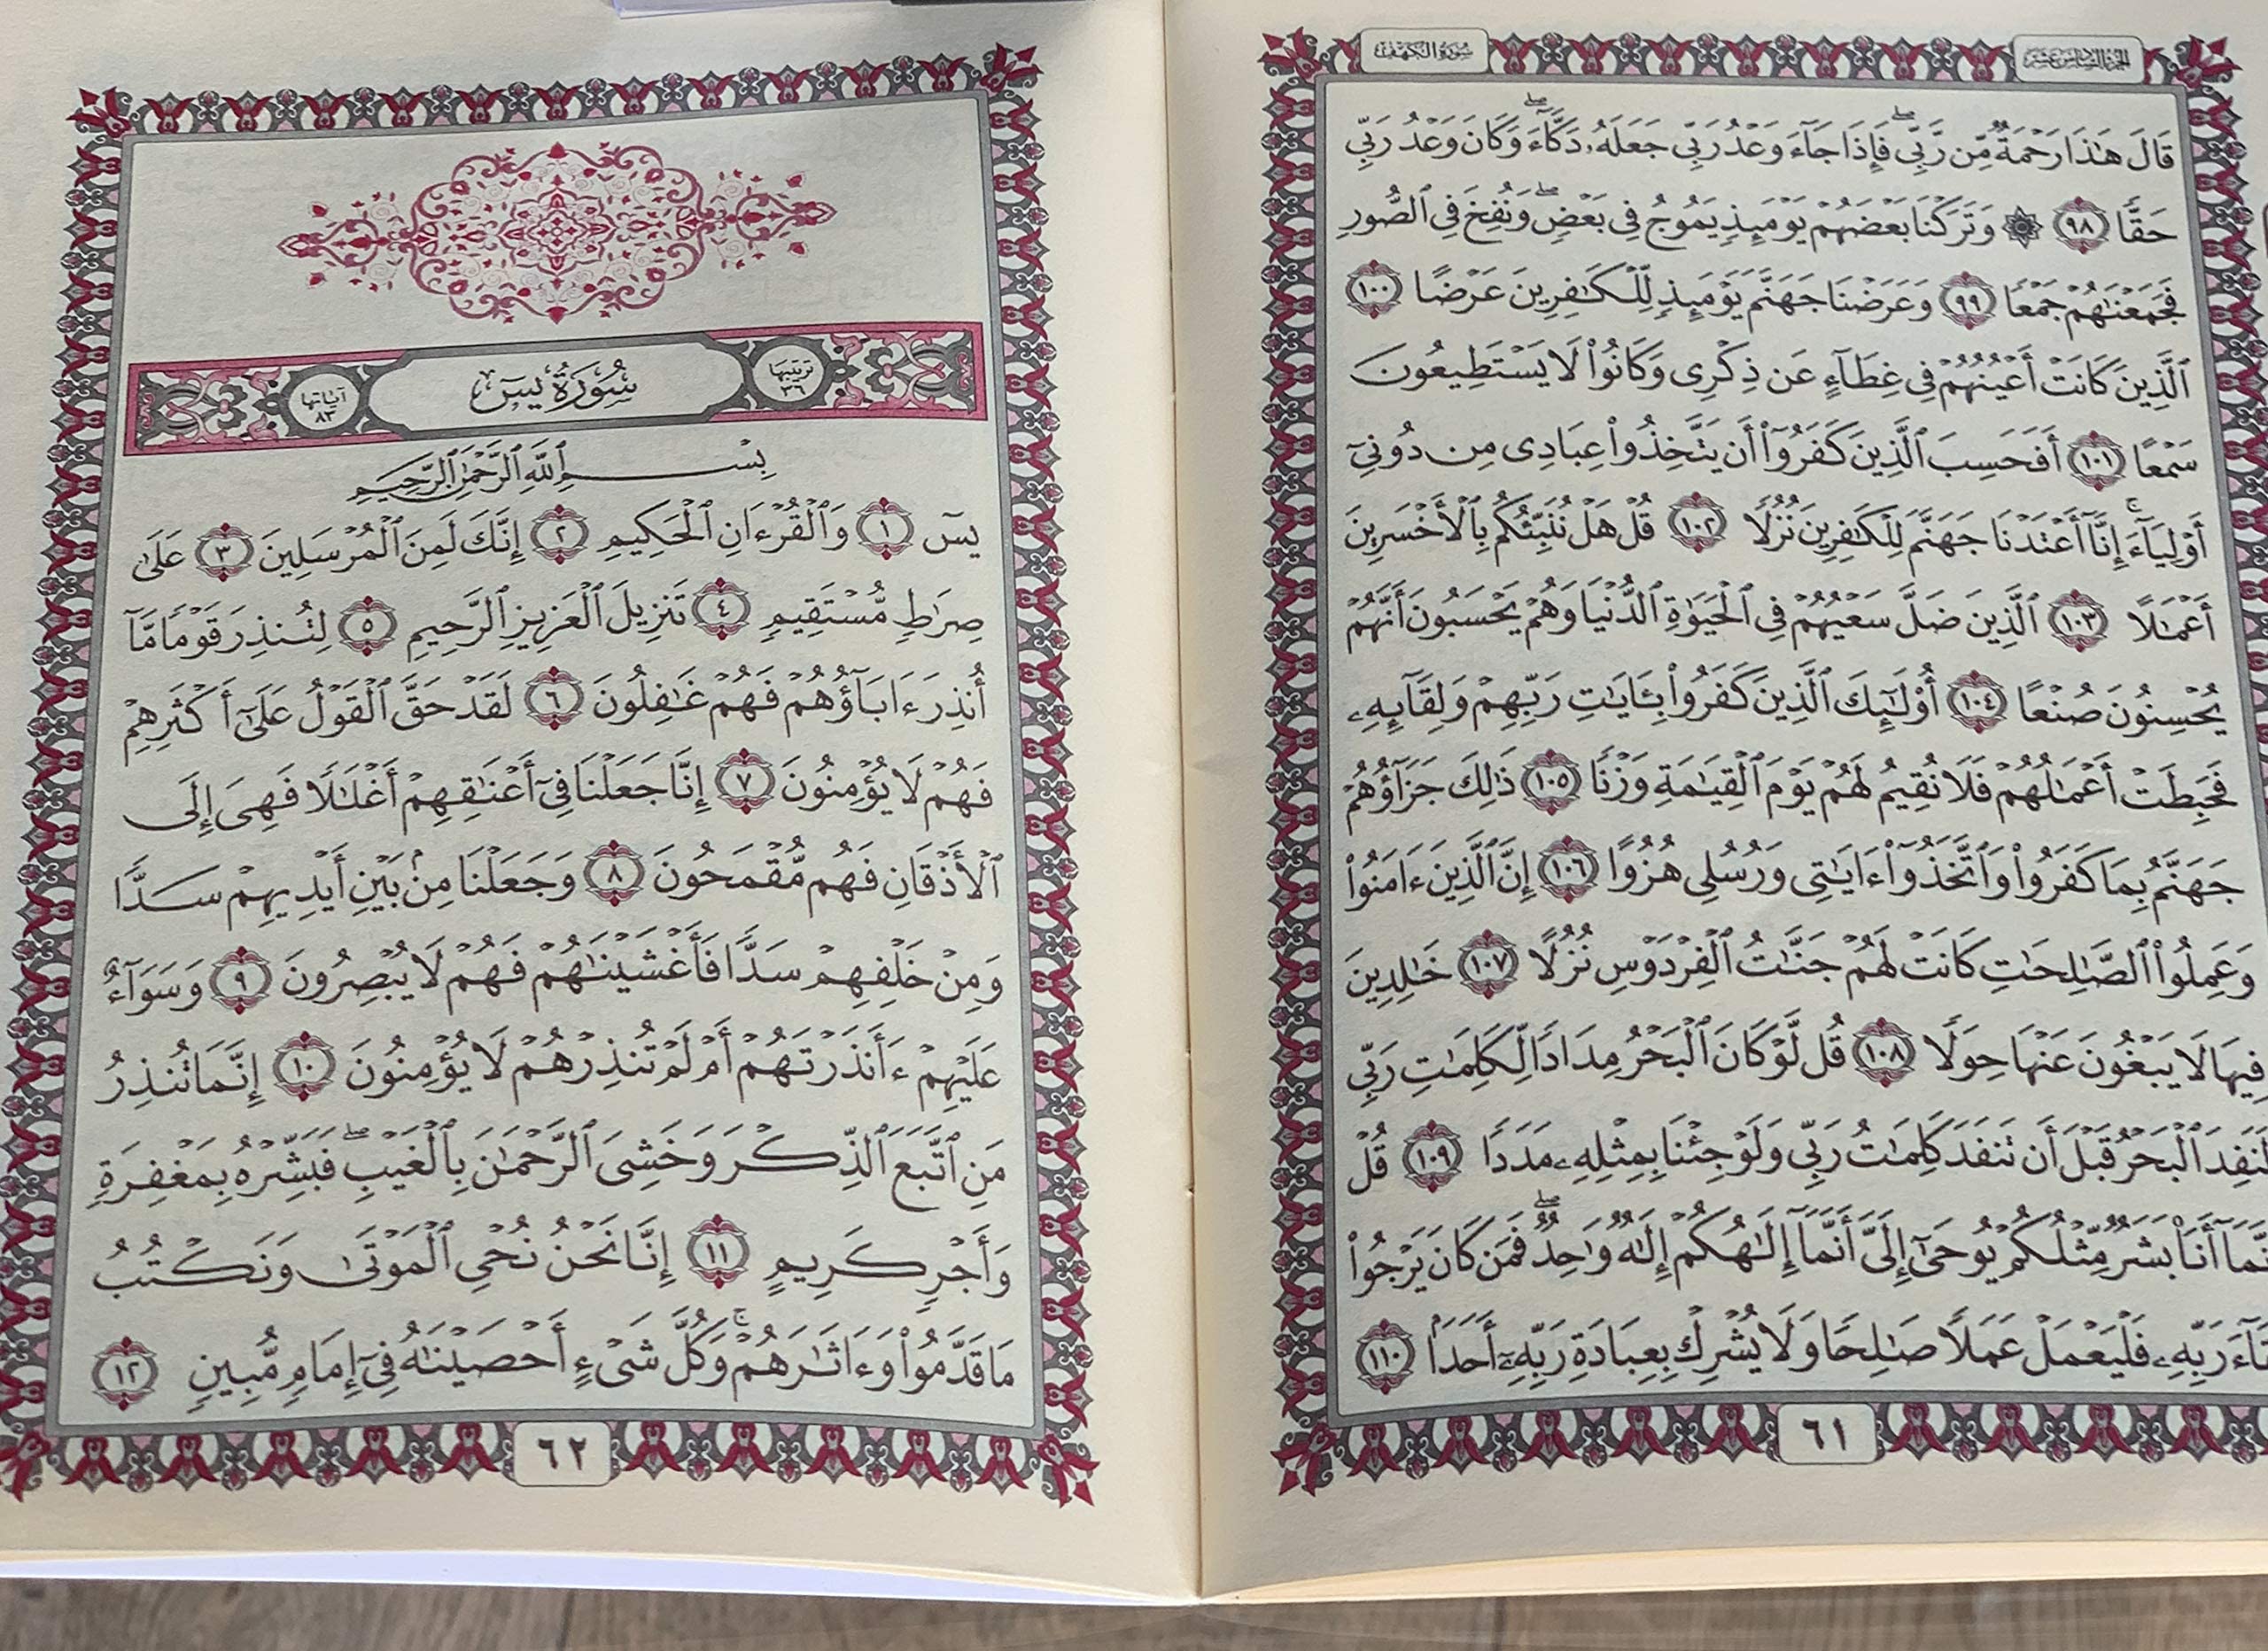 سُورَةُ الكَهْفِ
الجُزْءُ السَّادِسَ عَشَرَ
قَالَ هَٰذَا رَحْمَةٌ مِّن رَّبِّي ۖ فَإِذَا جَآءَ وَعْدُ رَبِّي جَعَلَهُۥ دَكَّآءَ ۖ وَكَانَ وَعْدُ رَبِّي
حَقًّا ٩٨ ۞ وَتَرَكْنَا بَعْضَهُمْ يَوْمَئِذٍ يَمُوجُ فِي بَعْضٍ ۖ وَنُفِخَ فِي ٱلصُّورِ
فَجَمَعْنَٰهُمْ جَمْعًا ٩٩ وَعَرَضْنَا جَهَنَّمَ يَوْمَئِذٍ لِّلْكَٰفِرِينَ عَرْضًا ١٠٠
ٱلَّذِينَ كَانَتْ أَعْيُنُهُمْ فِي غِطَآءٍ عَن ذِكْرِي وَكَانُوا۟ لَا يَسْتَطِيعُونَ
سَمْعًا ١٠١ أَفَحَسِبَ ٱلَّذِينَ كَفَرُوٓا۟ أَن يَتَّخِذُوا۟ عِبَادِي مِن دُونِيٓ
أَوْلِيَآءَ ۚ إِنَّآ أَعْتَدْنَا جَهَنَّمَ لِلْكَٰفِرِينَ نُزُلًا ١٠٢ قُلْ هَلْ نُنَبِّئُكُم بِٱلْأَخْسَرِينَ
أَعْمَٰلًا ١٠٣ ٱلَّذِينَ ضَلَّ سَعْيُهُمْ فِي ٱلْحَيَوٰةِ ٱلدُّنْيَا وَهُمْ يَحْسَبُونَ أَنَّهُمْ
يُحْسِنُونَ صُنْعًا ١٠٤ أُو۟لَٰٓئِكَ ٱلَّذِينَ كَفَرُوا۟ بِـَٔايَٰتِ رَبِّهِمْ وَلِقَآئِهِۦ
فَحَبِطَتْ أَعْمَٰلُهُمْ فَلَا نُقِيمُ لَهُمْ يَوْمَ ٱلْقِيَٰمَةِ وَزْنًا ١٠٥ ذَٰلِكَ جَزَآؤُهُمْ
جَهَنَّمُ بِمَا كَفَرُوا۟ وَٱتَّخَذُوٓا۟ ءَايَٰتِي وَرُسُلِي هُزُوًا ١٠٦ إِنَّ ٱلَّذِينَ ءَامَنُوا۟
وَعَمِلُوا۟ ٱلصَّٰلِحَٰتِ كَانَتْ لَهُمْ جَنَّٰتُ ٱلْفِرْدَوْسِ نُزُلًا ١٠٧ خَٰلِدِينَ
فِيهَا لَا يَبْغُونَ عَنْهَا حِوَلًا ١٠٨ قُل لَّوْ كَانَ ٱلْبَحْرُ مِدَادًا لِّكَلِمَٰتِ رَبِّي
لَنَفِدَ ٱلْبَحْرُ قَبْلَ أَن تَنفَدَ كَلِمَٰتُ رَبِّي وَلَوْ جِئْنَا بِمِثْلِهِۦ مَدَدًا ١٠٩ قُلْ
إِنَّمَآ أَنَا۠ بَشَرٌ مِّثْلُكُمْ يُوحَىٰٓ إِلَيَّ أَنَّمَآ إِلَٰهُكُمْ إِلَٰهٌ وَٰحِدٌ ۖ فَمَن كَانَ يَرْجُوا۟
لِقَآءَ رَبِّهِۦ فَلْيَعْمَلْ عَمَلًا صَٰلِحًا وَلَا يُشْرِكْ بِعِبَادَةِ رَبِّهِۦٓ أَحَدًۢا ١١٠
٦١
سُورَةُ يسٓ
ترتيبها ٣٦
آياتها ٨٣
بِسْمِ ٱللَّهِ ٱلرَّحْمَٰنِ ٱلرَّحِيمِ
يسٓ ١ وَٱلْقُرْءَانِ ٱلْحَكِيمِ ٢ إِنَّكَ لَمِنَ ٱلْمُرْسَلِينَ ٣ عَلَىٰ
صِرَٰطٍ مُّسْتَقِيمٍ ٤ تَنزِيلَ ٱلْعَزِيزِ ٱلرَّحِيمِ ٥ لِتُنذِرَ قَوْمًا مَّآ
أُنذِرَ ءَابَآؤُهُمْ فَهُمْ غَٰفِلُونَ ٦ لَقَدْ حَقَّ ٱلْقَوْلُ عَلَىٰٓ أَكْثَرِهِمْ
فَهُمْ لَا يُؤْمِنُونَ ٧ إِنَّا جَعَلْنَا فِيٓ أَعْنَٰقِهِمْ أَغْلَٰلًا فَهِيَ إِلَى
ٱلْأَذْقَانِ فَهُم مُّقْمَحُونَ ٨ وَجَعَلْنَا مِنۢ بَيْنِ أَيْدِيهِمْ سَدًّا
وَمِنْ خَلْفِهِمْ سَدًّا فَأَغْشَيْنَٰهُمْ فَهُمْ لَا يُبْصِرُونَ ٩ وَسَوَآءٌ
عَلَيْهِمْ ءَأَنذَرْتَهُمْ أَمْ لَمْ تُنذِرْهُمْ لَا يُؤْمِنُونَ ١٠ إِنَّمَا تُنذِرُ
مَنِ ٱتَّبَعَ ٱلذِّكْرَ وَخَشِيَ ٱلرَّحْمَٰنَ بِٱلْغَيْبِ ۖ فَبَشِّرْهُ بِمَغْفِرَةٍ
وَأَجْرٍ كَرِيمٍ ١١ إِنَّا نَحْنُ نُحْيِ ٱلْمَوْتَىٰ وَنَكْتُبُ
مَا قَدَّمُوا۟ وَءَاثَٰرَهُمْ ۚ وَكُلَّ شَيْءٍ أَحْصَيْنَٰهُ فِيٓ إِمَامٍ مُّبِينٍ ١٢
٦٢